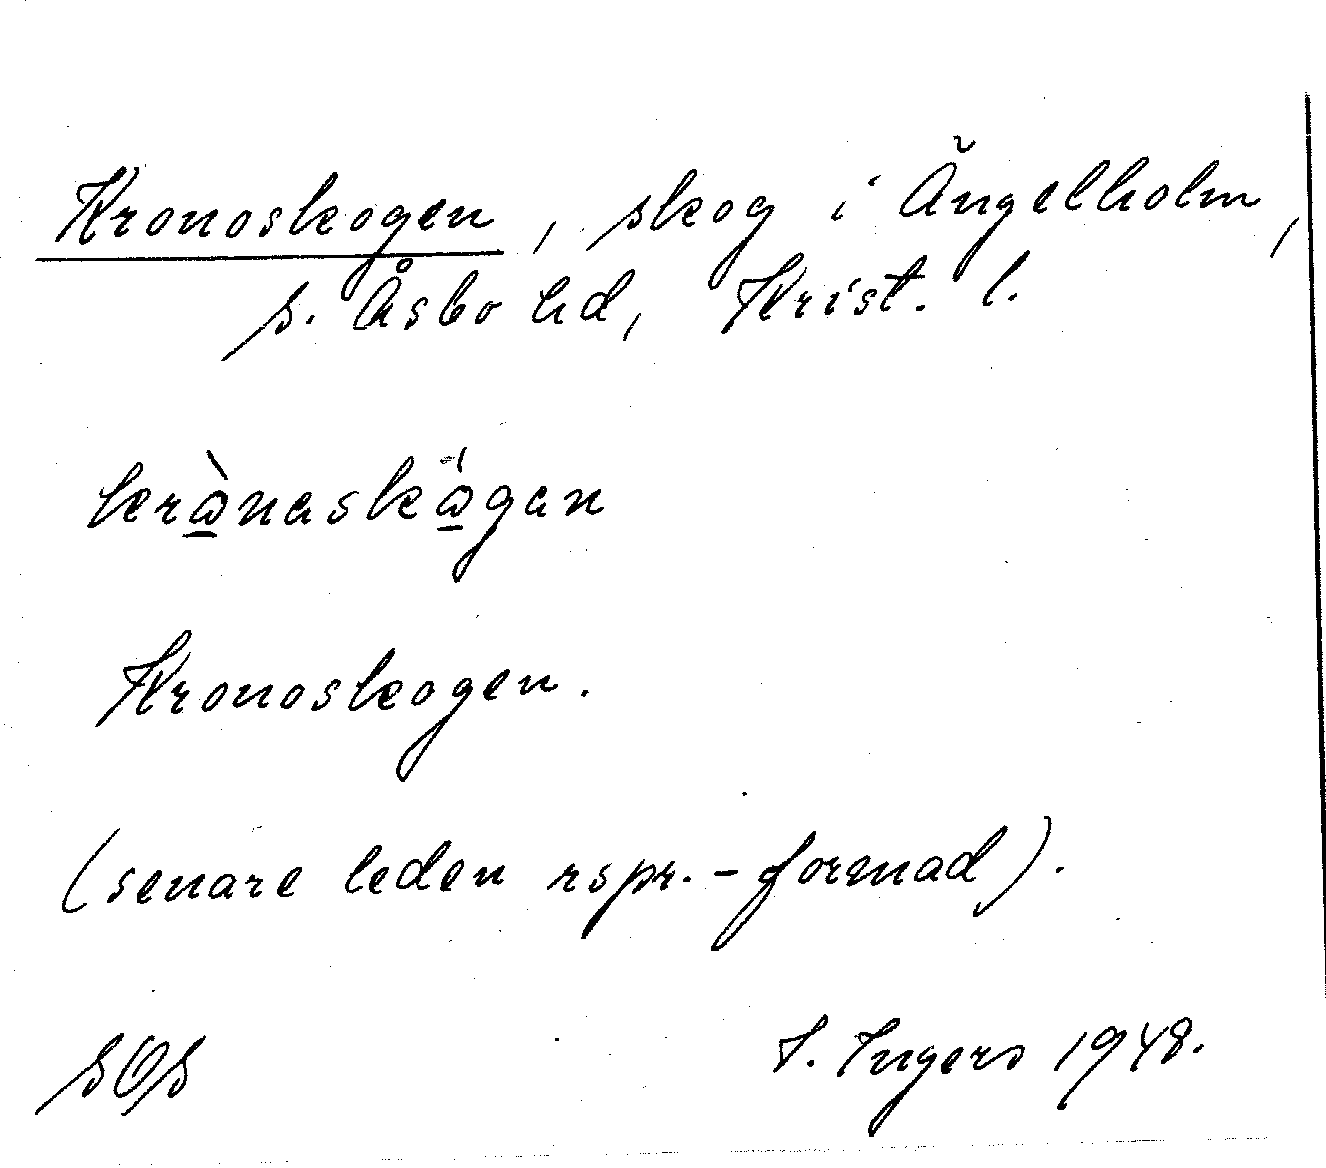 Kronoskogen, skog i Ängelholm,
S. Åsbo hd, Krist. l.
krὼ̲naskώ̲gan
Kronoskogen.
(senare leden rspr.-formad).
SOS I. Ingers 1948.